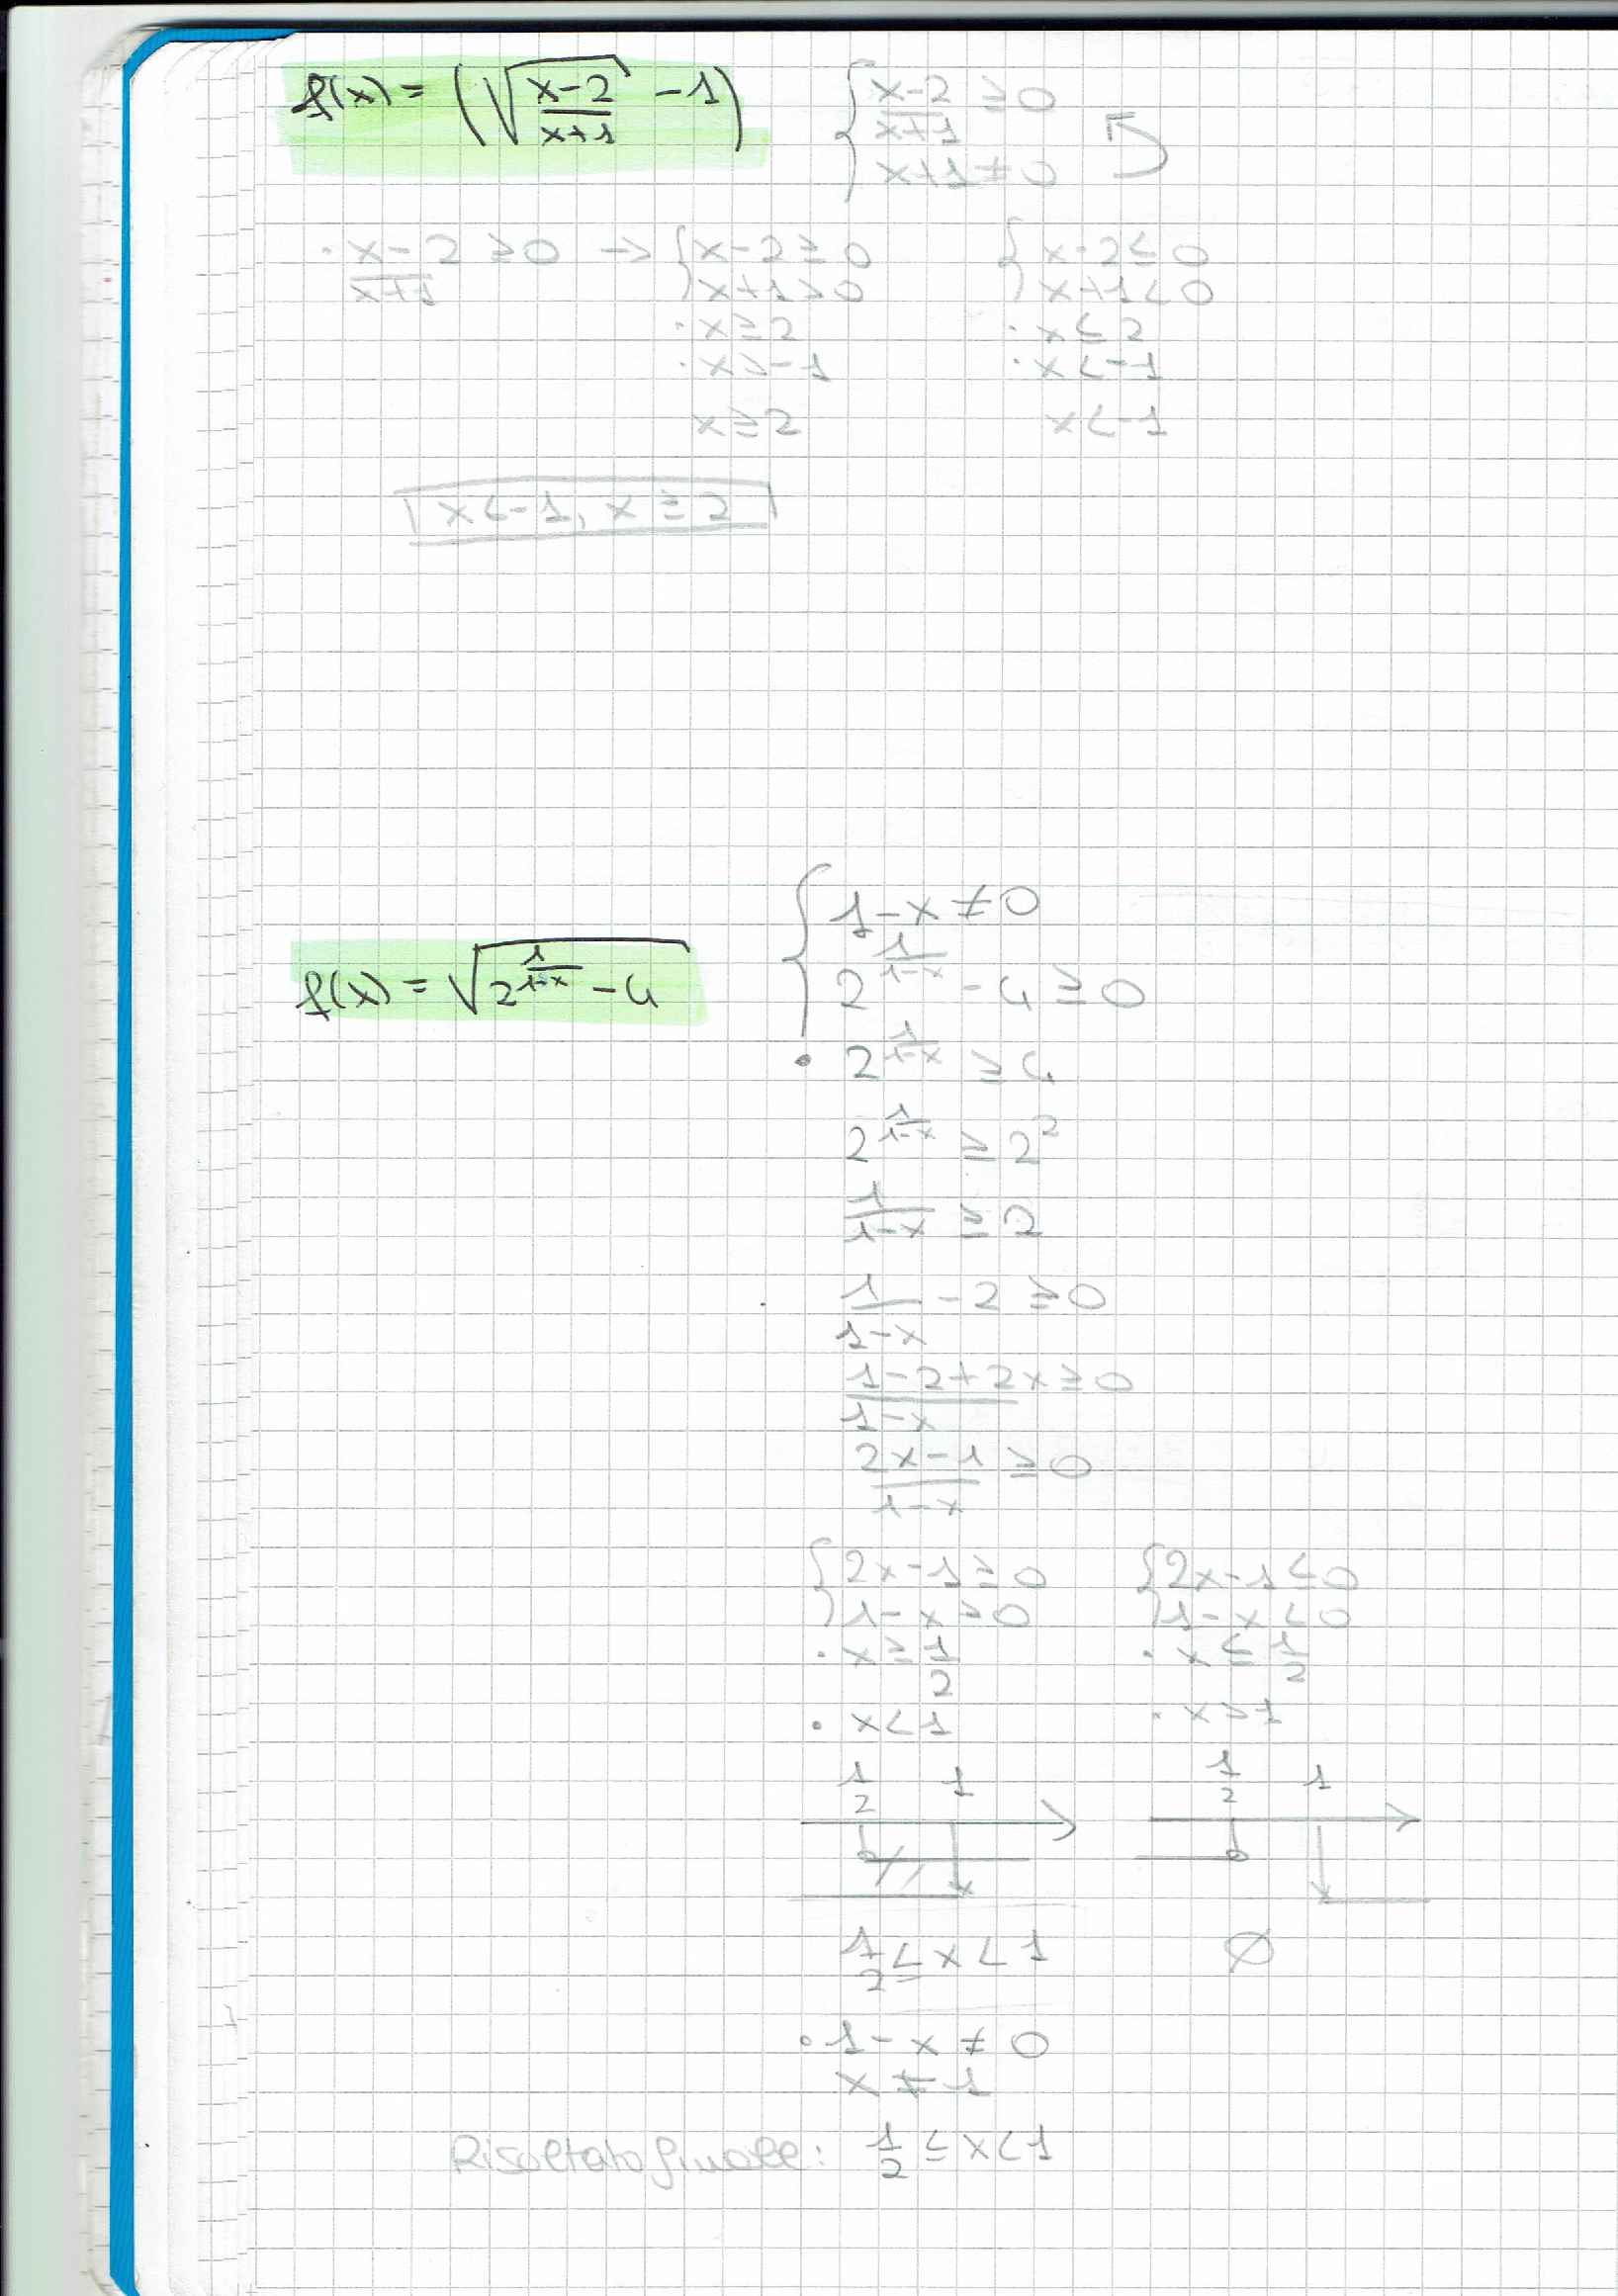 f(x) = (√((x-2)/(x+1)) - 1)
{ (x-2)/(x+1) ≥ 0
x+1 ≠ 0
· (x-2)/(x+1) ≥ 0 → { x-2 ≥ 0 { x-2 ≤ 0
x+1 > 0 x+1 < 0
· x ≥ 2 · x ≤ 2
· x > -1 · x < -1
x ≥ 2 x < -1
x < -1, x ≥ 2
f(x) = √(2^(1/(1-x)) - 4)
{ 1-x ≠ 0
2^(1/(1-x)) - 4 ≥ 0
· 2^(1/(1-x)) ≥ 4
2^(1/(1-x)) ≥ 2²
1/(1-x) ≥ 2
1/(1-x) - 2 ≥ 0
(1-2+2x)/(1-x) ≥ 0
(2x-1)/(1-x) ≥ 0
{ 2x-1 ≥ 0 { 2x-1 ≤ 0
1-x > 0 1-x < 0
· x ≥ 1/2 · x ≤ 1/2
· x < 1 · x > 1
1/2 1 1/2 1
1/2 ≤ x < 1 ∅
· 1-x ≠ 0
x ≠ 1
Risultato finale: 1/2 ≤ x < 1